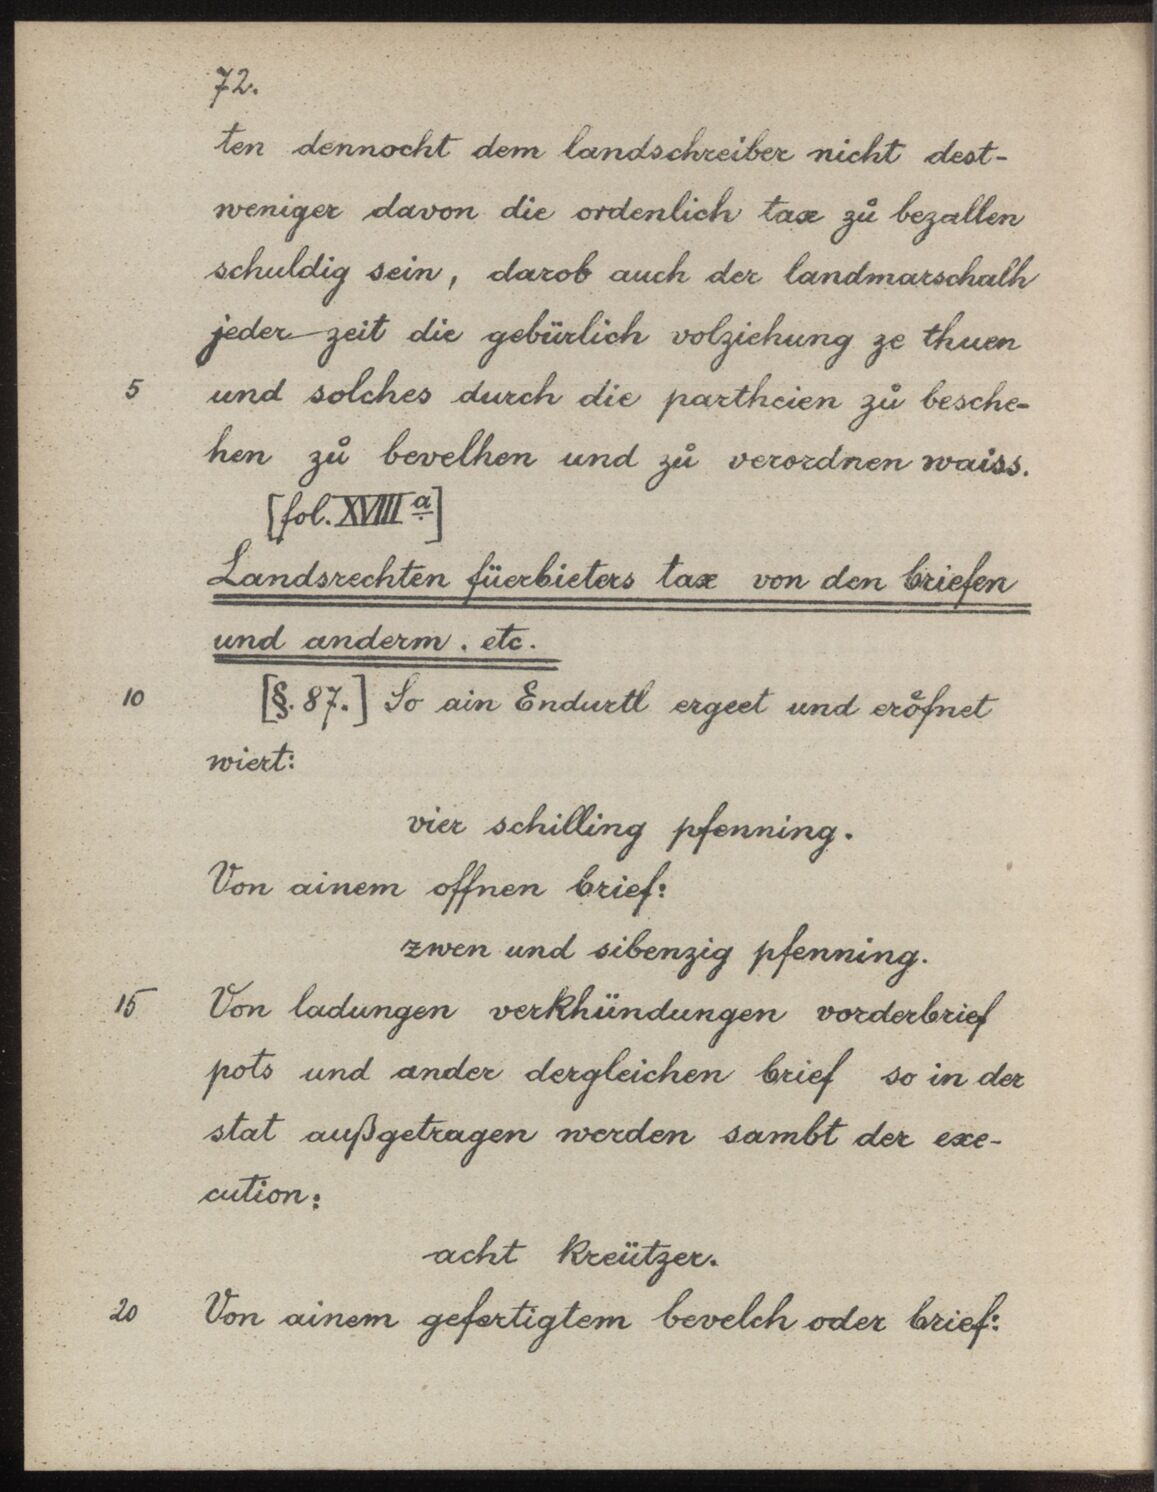 72.
ten dennocht dem landschreiber nicht dest-
weniger davon die ordenlich tax zů bezallen
schuldig sein, darob auch der landmarschalh
jeder zeit die gebürlich volziehung ze thuen
5 und solches durch die partheien zů besche-
hen zů bevelhen und zů verordnen waiss.
[fol. XVIII a]
Landsrechten füerbieters tax von den briefen
und anderm. etc.
10 [§. 87.] So ain Endurtl ergeet und eröfnet
wiert:
vier schilling pfenning.
Von ainem offnen brief:
zwen und sibenzig pfenning.
15 Von ladungen verkhündungen vorderbrief
pots und ander dergleichen brief so in der
stat außgetragen werden sambt der exe-
cution:
acht kreützer.
20 Von ainem gefertigtem bevelch oder brief: